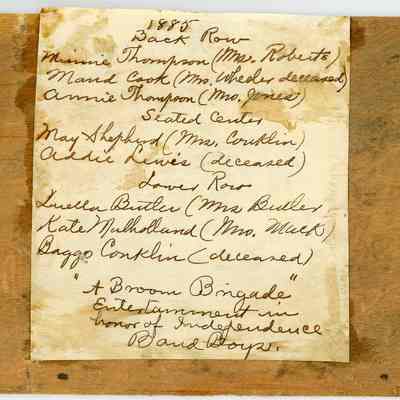 1885
Back Row
Minnie Thompson (Mrs. Roberts)
Maud Cook (Mrs. Wheeler deceased)
Annie Thompson (Mrs. Jones)
Seated Center
May Shepherd (Mrs. Conklin)
Addie Lewis (deceased)
Lower Row
Luella Butler (Mrs Butler
Kate Mulholland (Mrs. Mack)
Baggo Conklin (deceased)
"A Broom Brigade"
Entertainment in
honor of Independence
Band Boys.